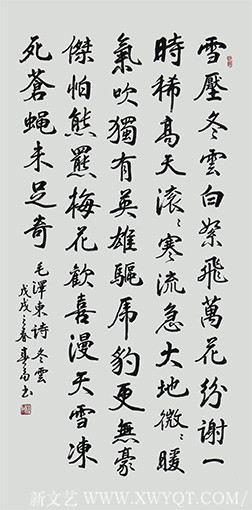 雪壓冬雲白絮飛萬花紛謝一
時稀高天滾〻寒流急大地微〻暖
氣吹獨有英雄驅虎豹更無豪
傑怕熊羆梅花歡喜漫天雪凍
死蒼蠅未足奇
毛澤東詩冬雲
戊戌之春书
新文艺 / WWW.XWYQT.COM